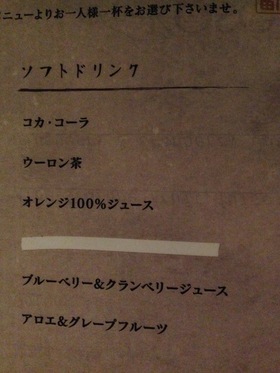 ニューよりお一人様一杯をお選び下さいませ。
ソフトドリンク
コカ・コーラ
ウーロン茶
オレンジ100%ジュース
ブルーベリー&クランベリージュース
アロエ&グレープフルーツ